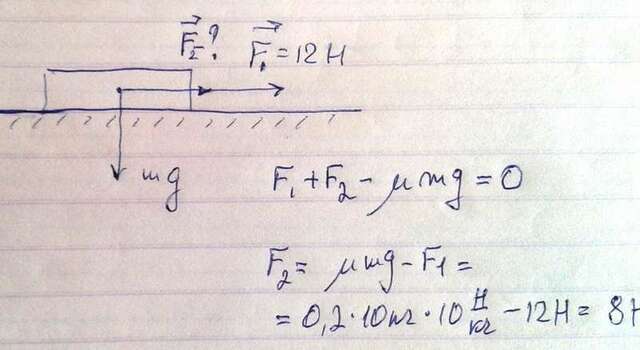 F₂? F₁ = 12 Н
mg
F₁ + F₂ - μmg = 0
F₂ = μmg - F₁ =
= 0,2·10кг·10 Н/кг - 12Н = 8Н